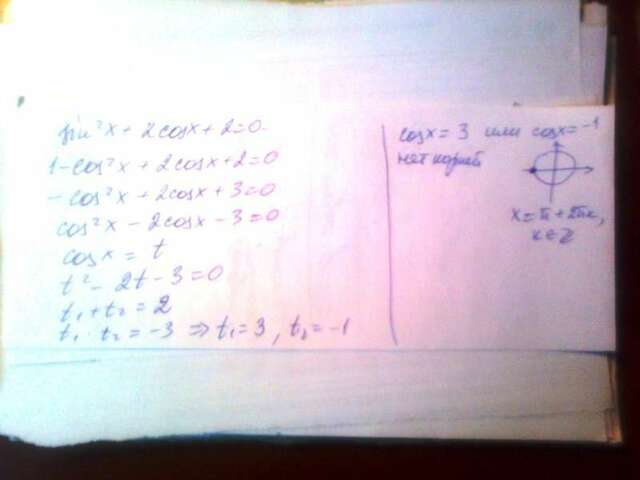 sin²x + 2cosx + 2 = 0
1 - cos²x + 2cosx + 2 = 0
- cos²x + 2cosx + 3 = 0
cos²x - 2cosx - 3 = 0
cosx = t
t² - 2t - 3 = 0
t₁ + t₂ = 2
t₁ · t₂ = -3 ⇒ t₁ = 3, t₂ = -1
cosx = 3 или cosx = -1
нет корней
x = π + 2πк,
к ∈ Z